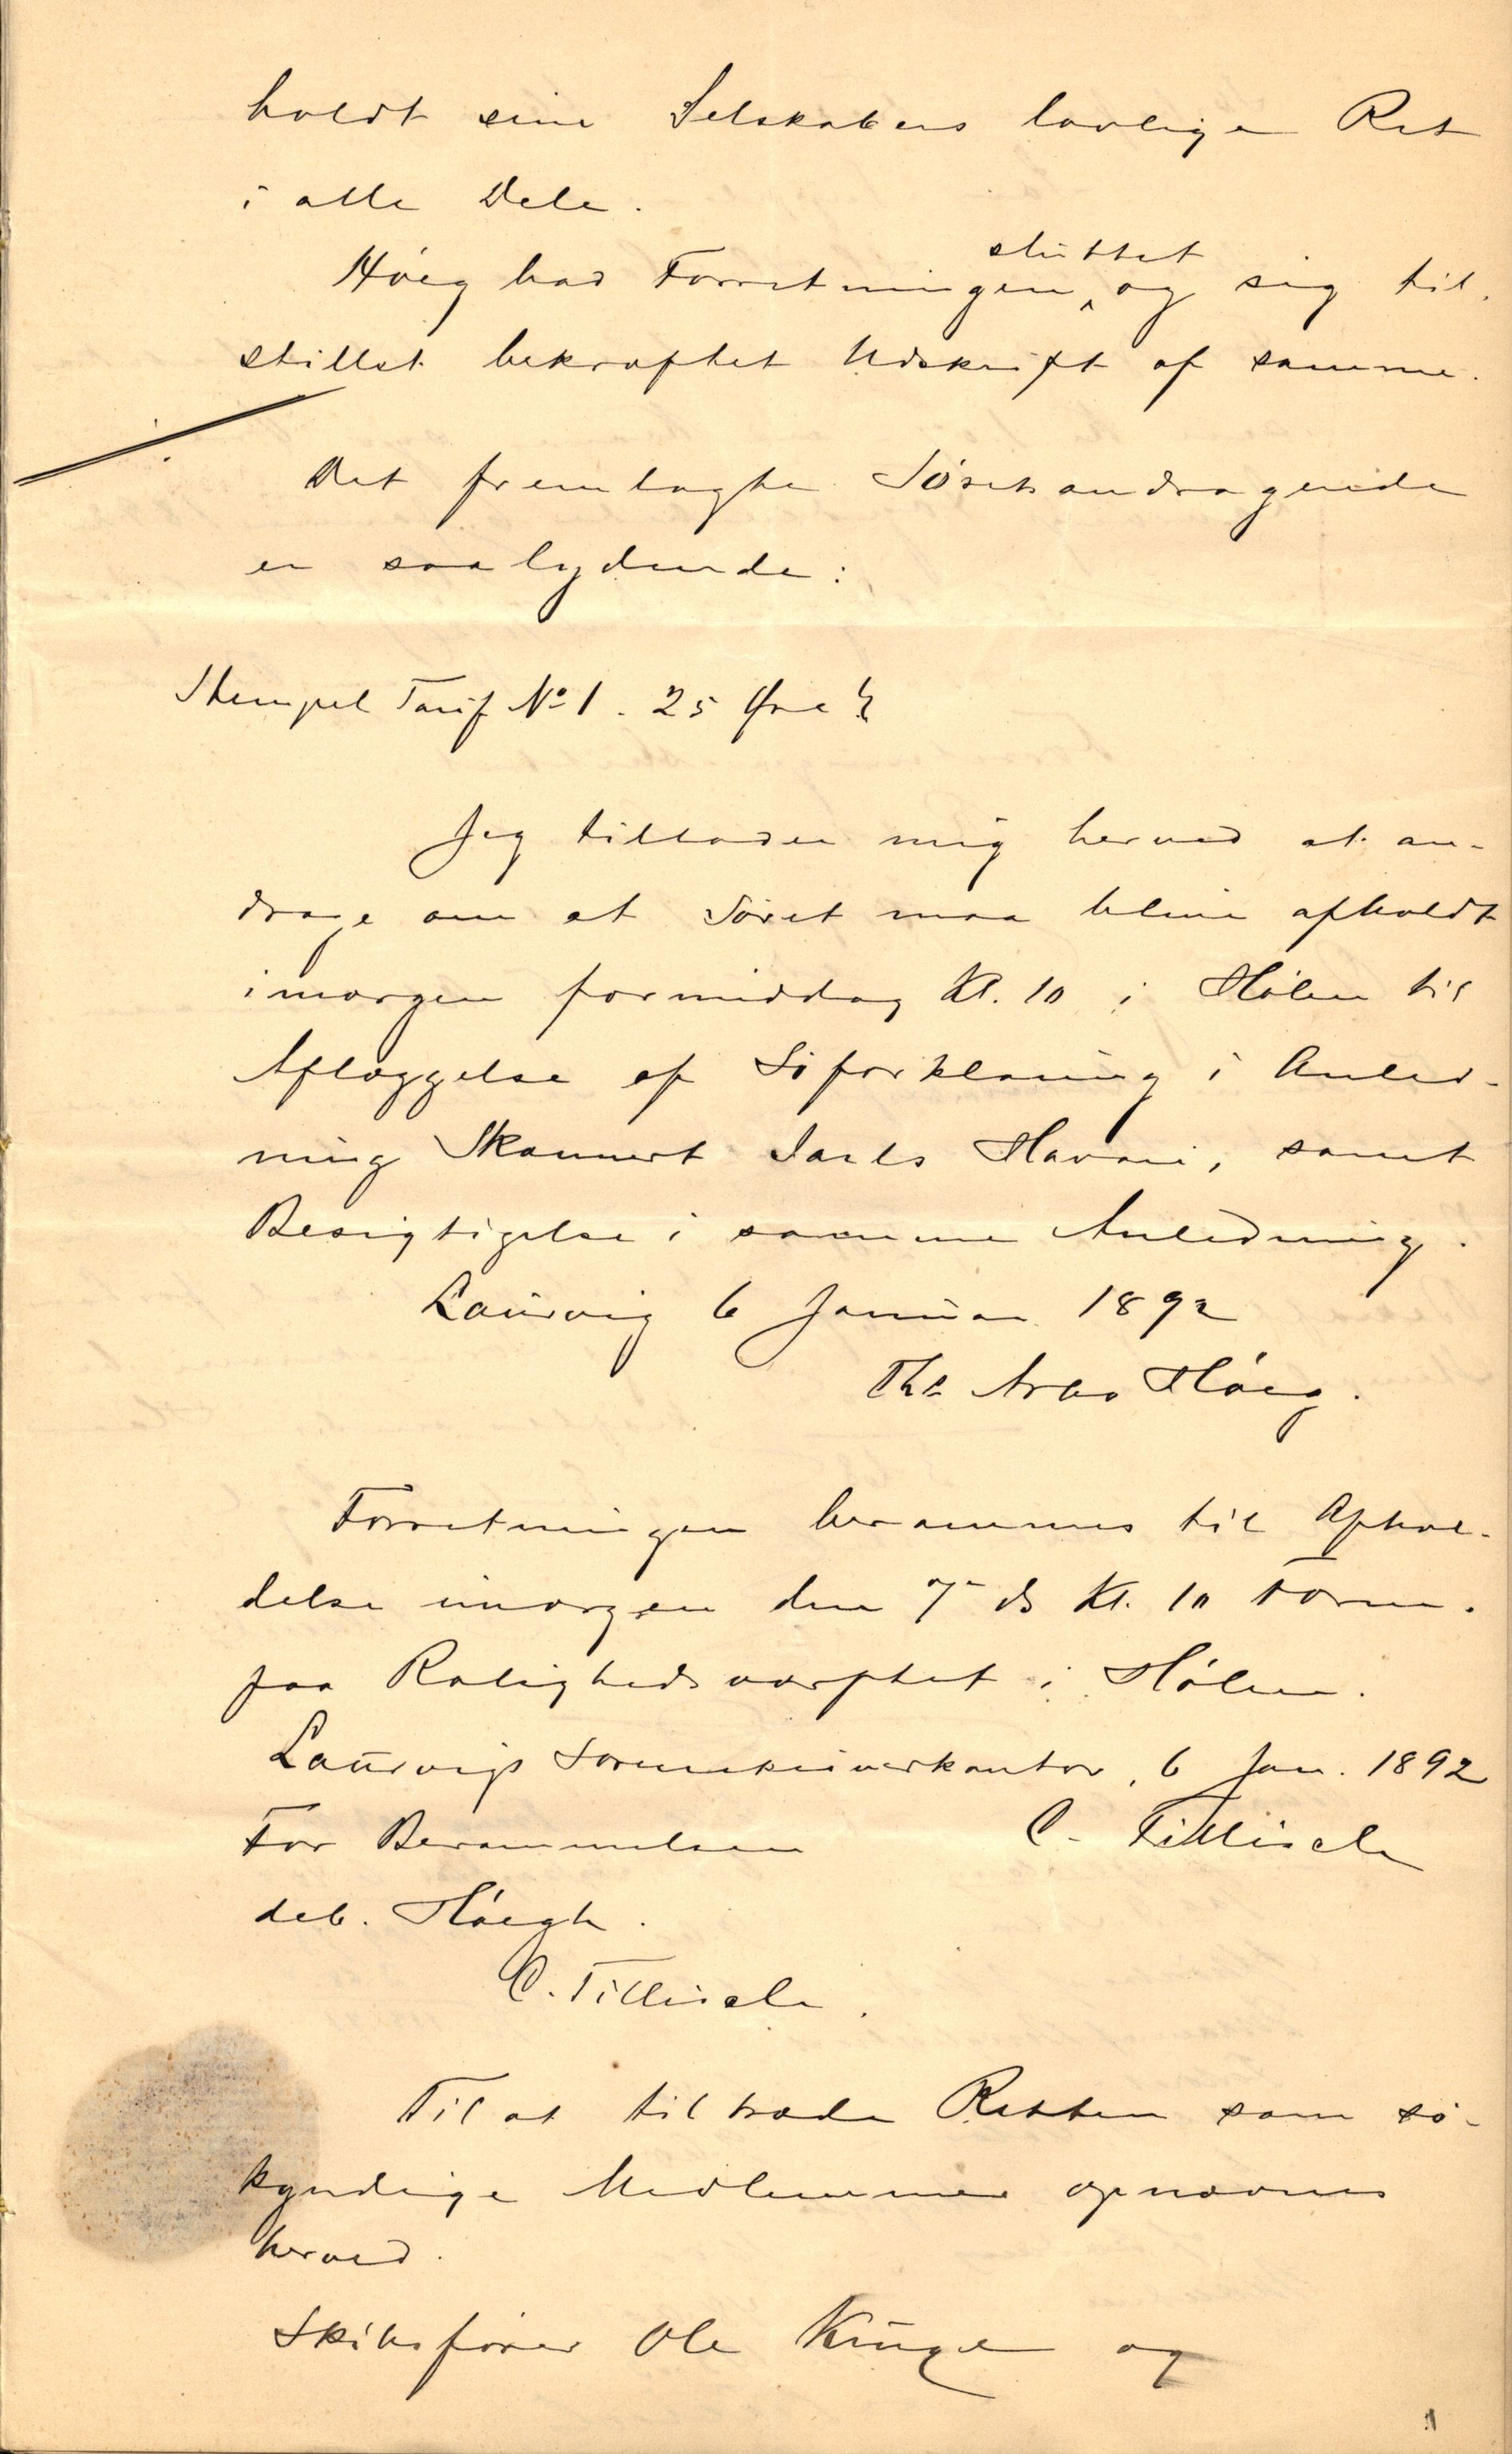 holdt sine Selskabers lovlige Ret
i alle Dele.
Höeg bad Forretningen sluttet og sig til-
stillet bekræftet Udskrift af samme.
Det fremlagte Söretsandragende
er saalydende:
Stempel Tarif No 1. 25 Øre
Jeg tillader mig herved at an-
drage om at Söret maa blive afholdt
imorgen formiddag Kl. 10 i Hölen til
Aflæggelse af Söforklaring i Anled-
ning Skonnert Jarls Havari, samt
Besigtigelse i samme Anledning.
Laurvig 6 Januar 1892
Chr Arbo Höeg.
Forretningen berammes til Aphol-
delse imorgen den 7de ds Kl. 10 Form.
paa Rolighedsværftet i Hölen.
Laurvigs Sorenskriverkontor, 6 Jan. 1892
C. Tillisch
For Berammelsen
deb. Höegh.
C. Tillisch.
Til at tiltræde Retten som sö-
kyndige Medlemmer opnævnes
herved.
Skibsförer Ole Kruge og